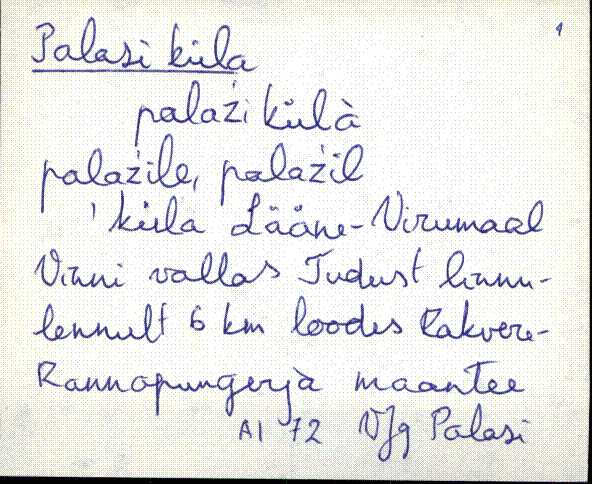 1
Palasi küla
palaźi külà
palaźile, palaźil
'küla Lääne-Virumaal
Vinni vallas Tudust linnu-
lennult 6 km loodes Rakvere-
Rannapungerjà maantee
AI 72 VJg Palasi